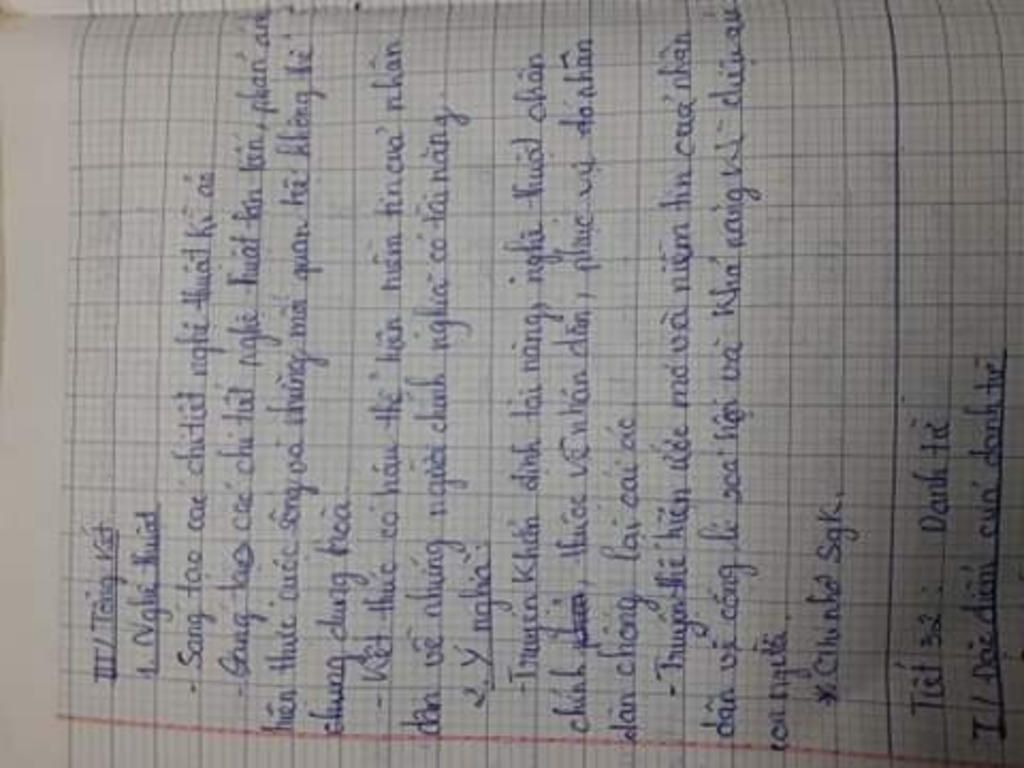 III/ Tổng Kết
1. Nghệ thuật
- Sáng tạo các chi tiết nghệ thuật kì ảo
- Sáng tạo các chi tiết nghệ thuật tăn tiến, phản ánh
hiện thực cuộc sống và những mối quan hệ không thể
chung dung hoà
- Kết thúc có hậu thể hiện niềm tin của nhân
dân về những người chính nghĩa có tài năng
2. Ý nghĩa:
- Truyện khẳn định tài năng, nghệ thuật chân
chính, thuộc về nhân dân, phục vụ do nhân
dân chống lại cái ác
- Truyện thể hiện ước mơ và niềm tin của nhân
dân về công lí xoá hội và khả năng kì diệu của
con người.
* Ghi nhớ Sgk.
Tiết 32: Danh từ
I/ Đặc điểm của danh từ